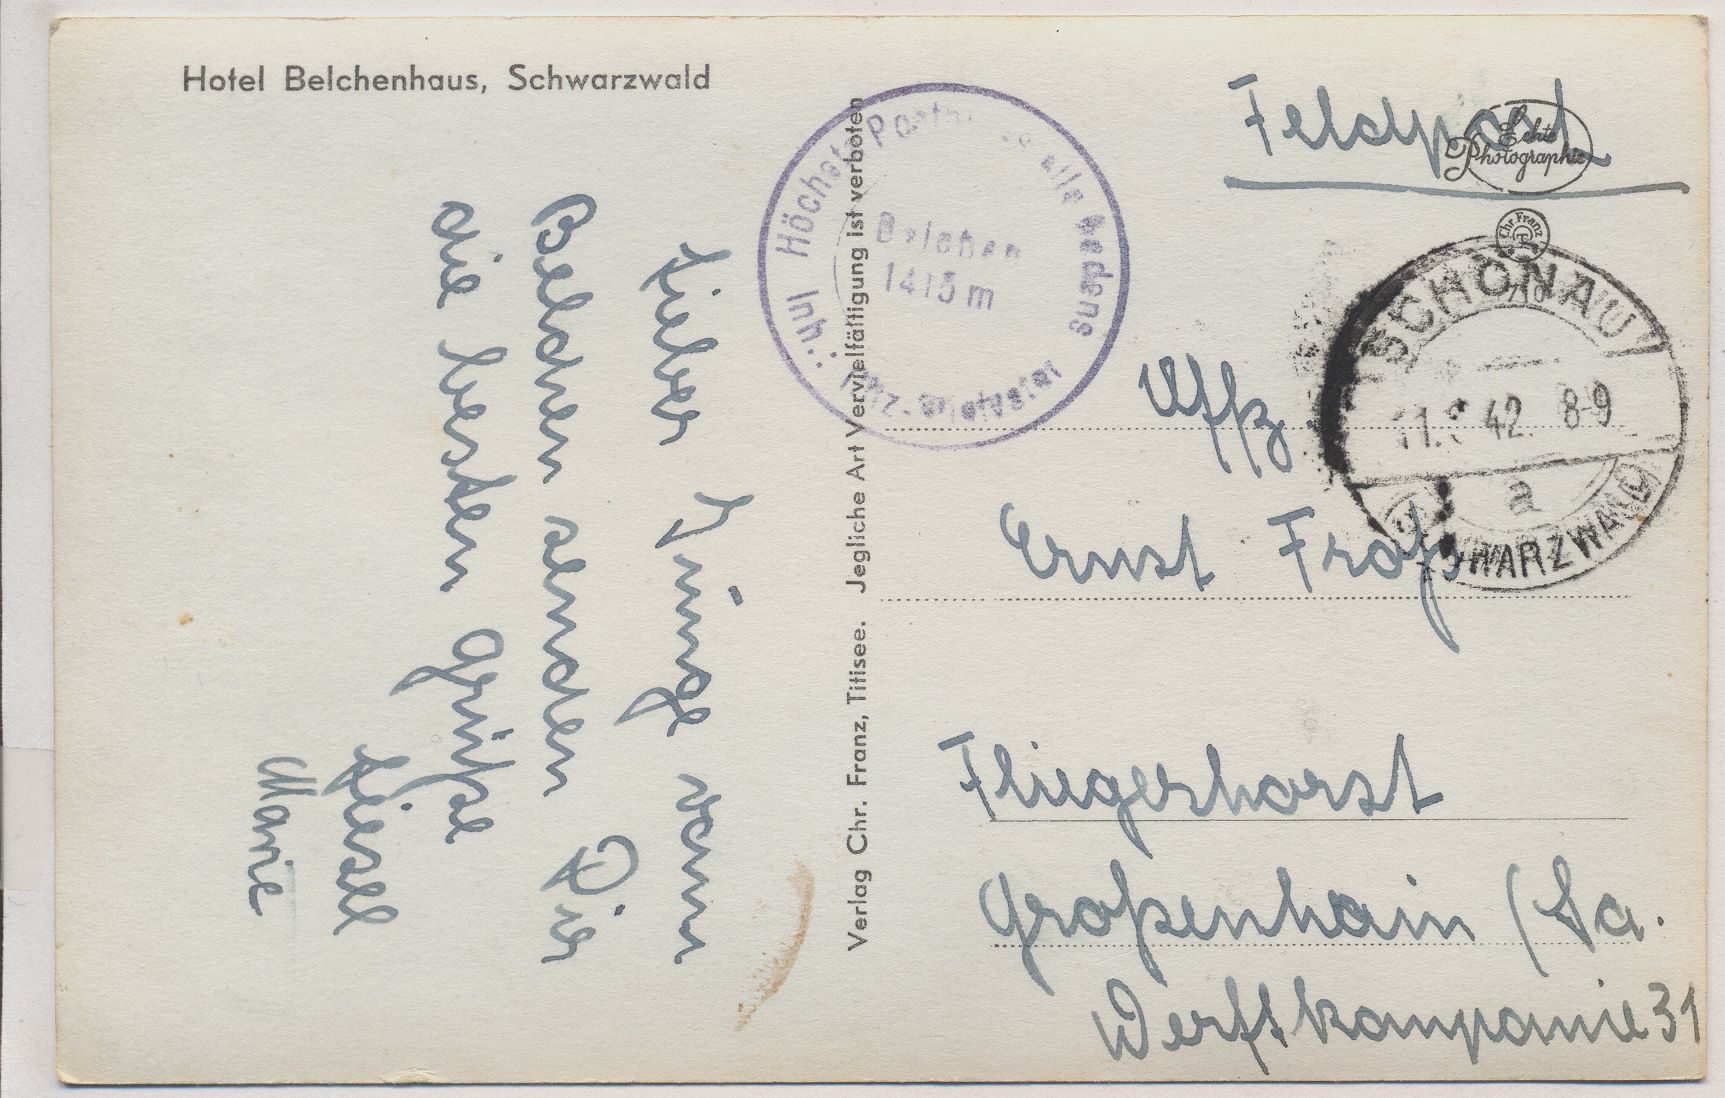 Hotel Belchenhaus, Schwarzwald
Lieber Junge vom
Belchen senden Dir
die besten Grüße
Liesel
Marie
Verlag Chr. Franz, Titisee. Jegliche Art Vervielfältigung ist verboten
Höchste Badens
Belchen
1415 m
Inh.:
Feldpost
Echte
Photographie
Chr. Franz
SCHÖNAU
42 8-9
a
SCHWARZWALD
Uffz.
Ernst
Fliegerhorst
Großenhain (Sa.
Werftkompanie 31